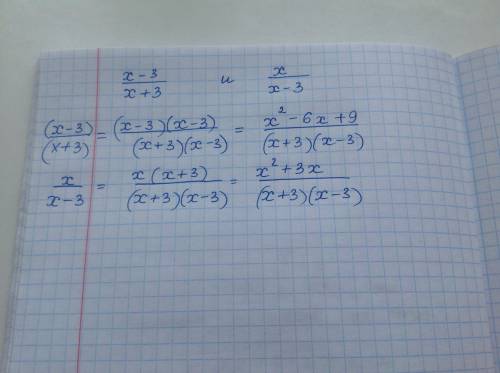 (x-3)/(x+3) и x/(x-3)
(x-3)/(x+3) = (x-3)(x-3)/(x+3)(x-3) = x² - 6x + 9/(x+3)(x-3)
x/(x-3) = x(x+3)/(x+3)(x-3) = x² + 3x/(x+3)(x-3)